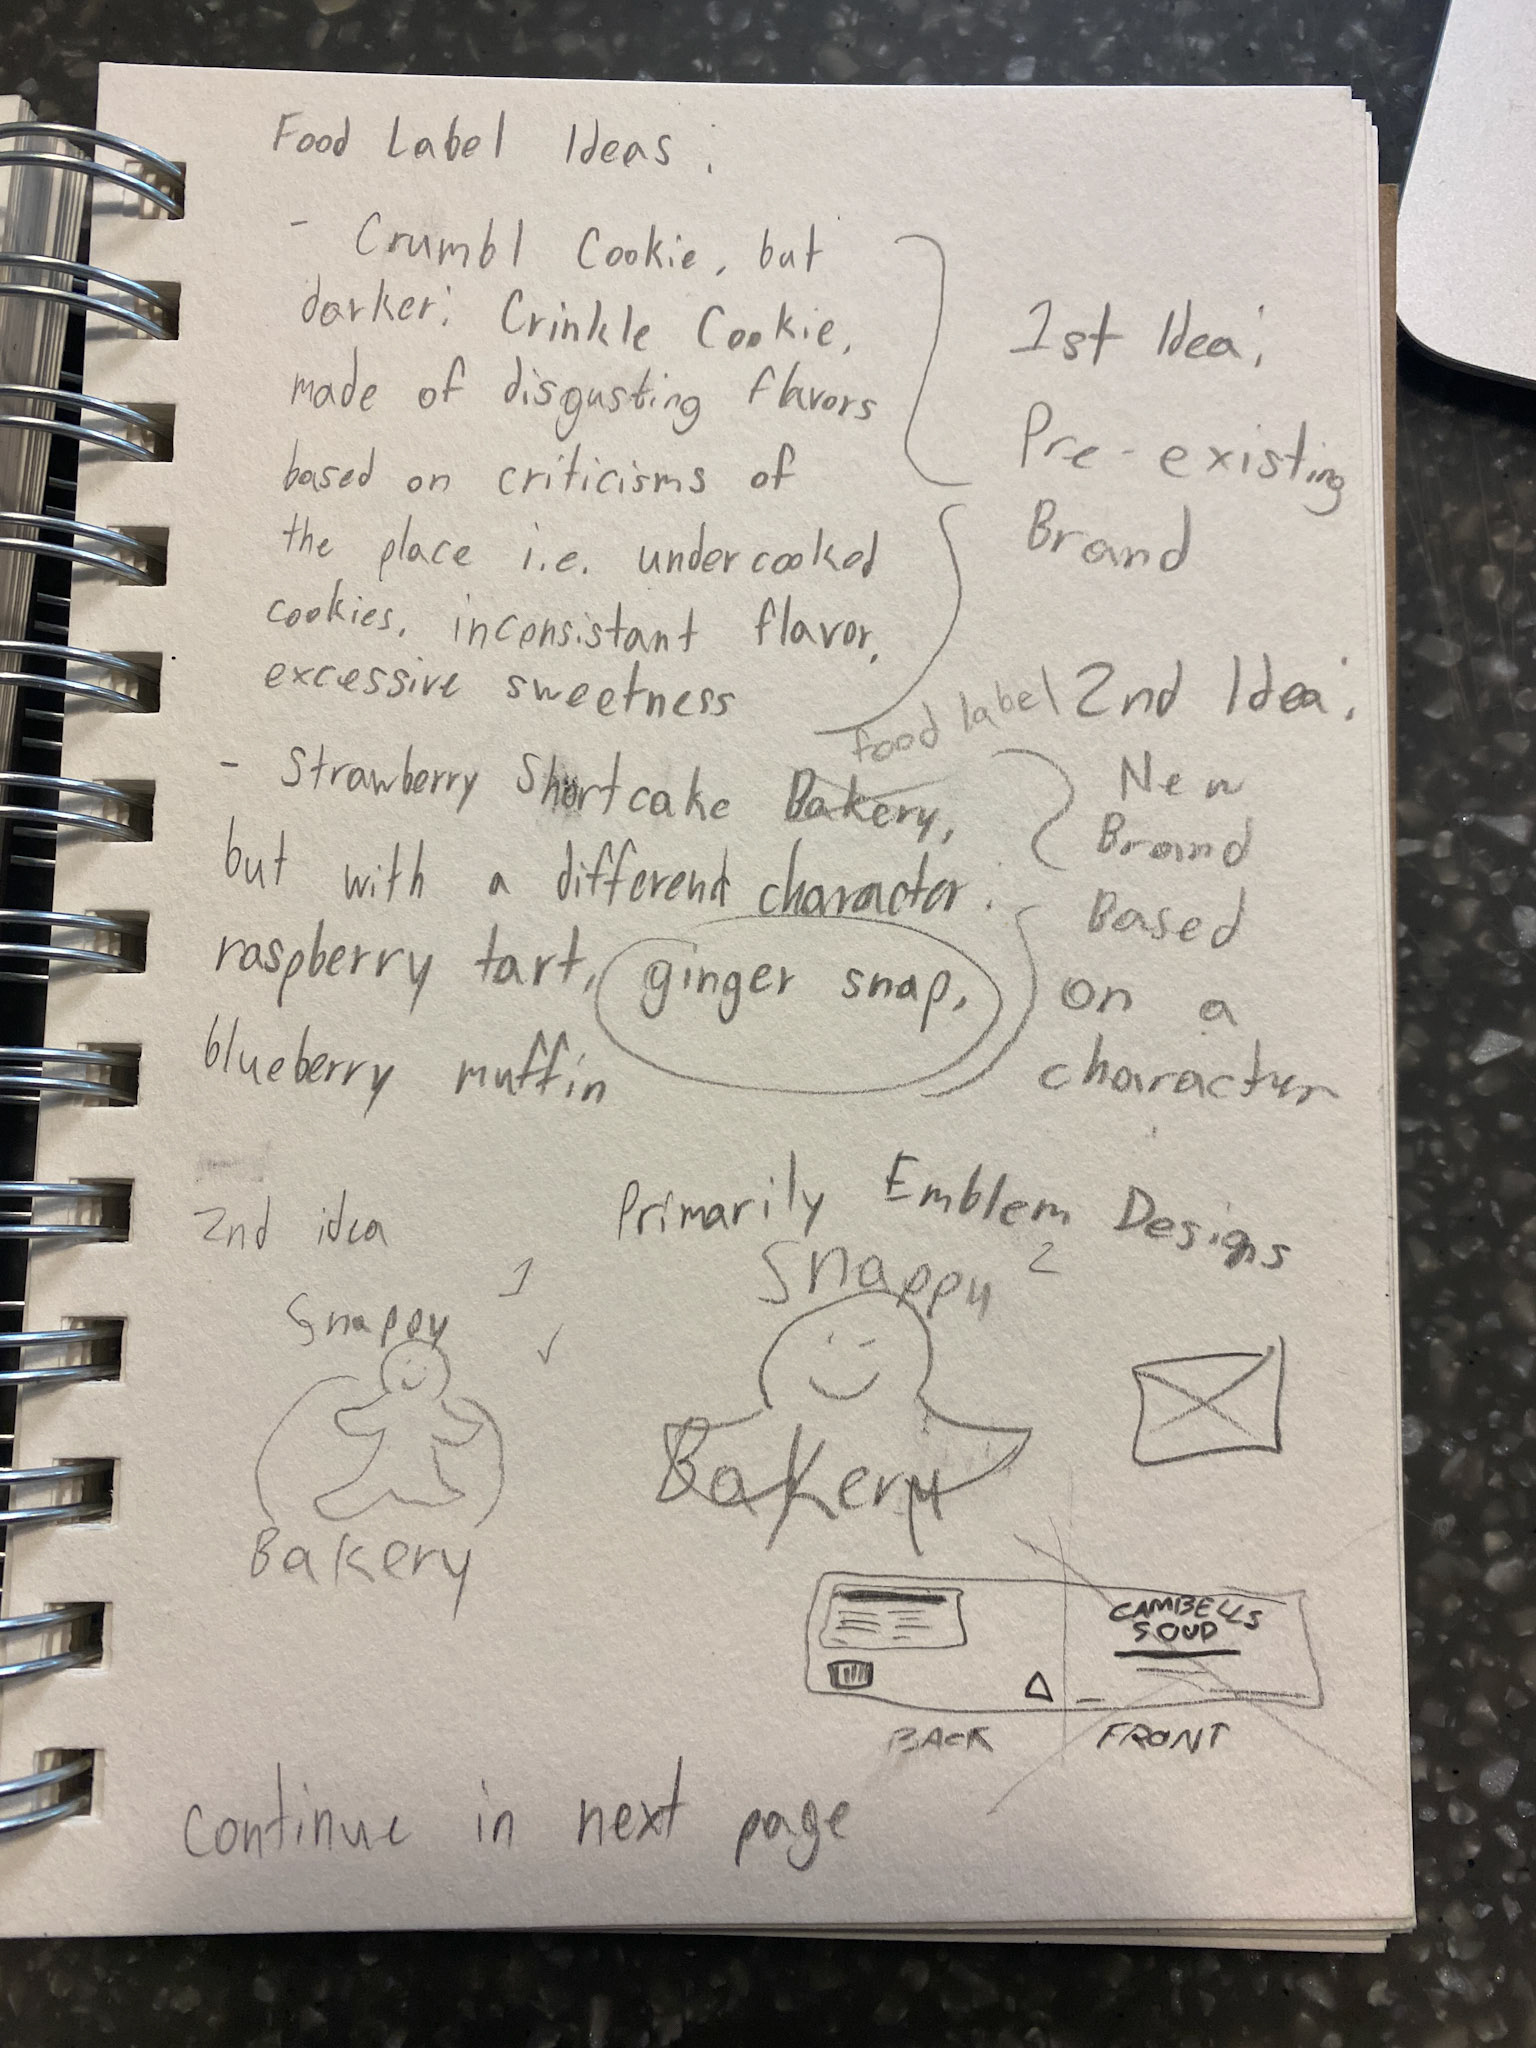 Food Label Ideas:
- Crumbl Cookie, but
darker: Crinkle Cookie,
made of disgusting flavors
based on criticisms of
the place i.e. undercooked
cookies, inconsistant flavor,
excessive sweetness
1st Idea:
Pre-existing
Brand
food label
- Strawberry Shortcake Bakery,
but with a different character.
raspberry tart, ginger snap,
blueberry muffin
2nd Idea:
New
Brand
Based
on a
character
2nd idea
Primarily Emblem Designs
1
Snappy
Bakery
2
Snappy
Bakery
CAMBELLS
SOUP
BACK
FRONT
continue in next page